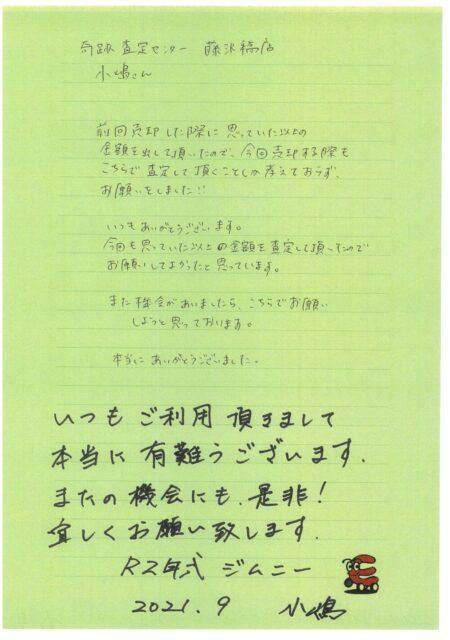 奇跡査定センター 藤沢橘店
小嶋さん
前回売却した際に思っていた以上の
金額を出して頂いたので、今回売却する際も
こちらで査定して頂くことしか考えておらず、
お願いをしました!!
いつもありがとうございます。
今回も思っていた以上の金額を査定して頂いたので
お願いしてよかったと思っています。
また機会がありましたら、こちらでお願い
しようと思っております。
本当にありがとうございました。
いつもご利用頂きまして
本当に有難うございます。
またの機会にも、是非!
宜しくお願い致します。
R2年式 ジムニー
2021.9 小嶋